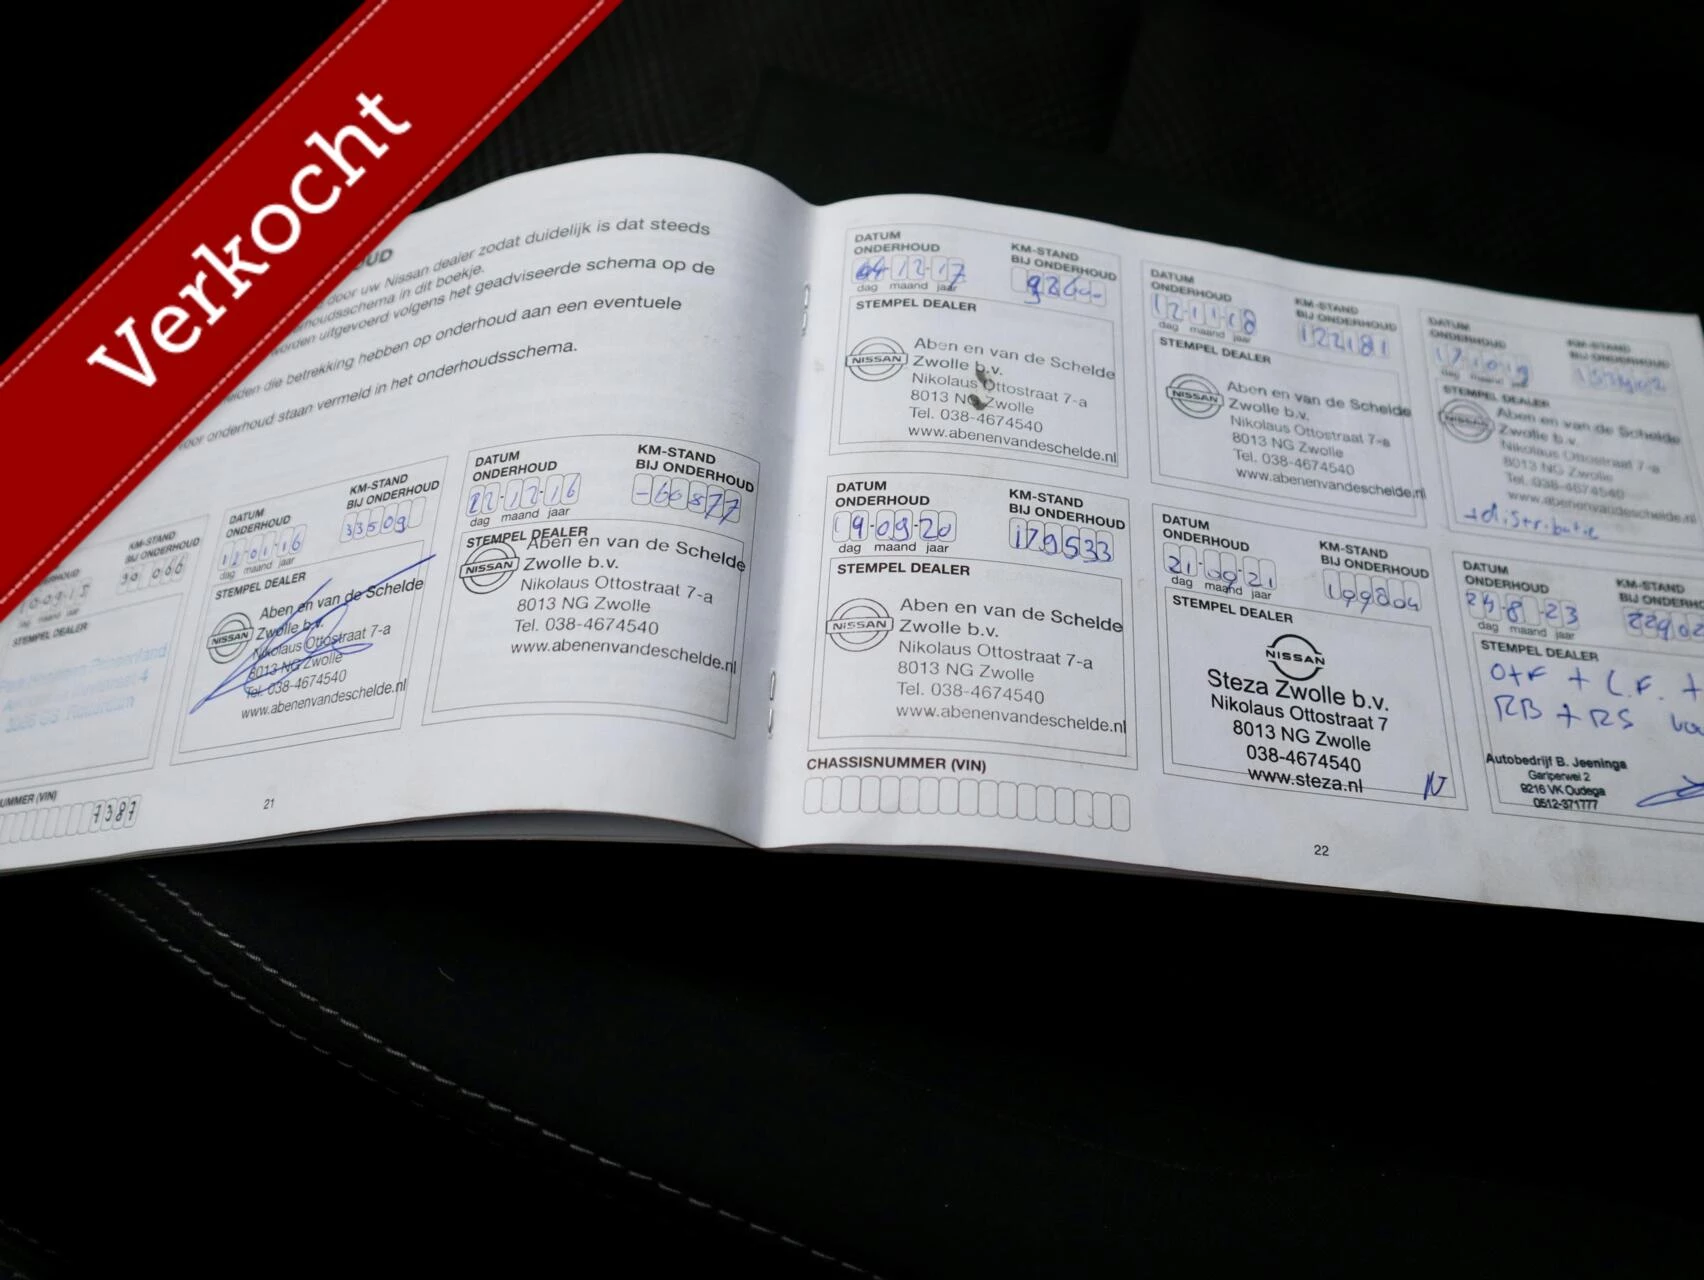 Verkocht
door uw Nissan dealer zodat duidelijk is dat steeds
in dit boekje.
uitgevoerd volgens het geadviseerde schema op de
die betrekking hebben op onderhoud aan een eventuele
onderhoud staan vermeld in het onderhoudsschema.
KM-STAND
BIJ ONDERHOUD
30 066
dag maand jaar
STEMPEL DEALER
DATUM
ONDERHOUD
12-01-16
dag maand jaar
KM-STAND
BIJ ONDERHOUD
33509
STEMPEL DEALER
NISSAN
Aben en van de Schelde
Zwolle b.v.
Nikolaus Ottostraat 7-a
8013 NG Zwolle
Tel. 038-4674540
www.abenenvandeschelde.nl
DATUM
ONDERHOUD
22-12-16
dag maand jaar
KM-STAND
BIJ ONDERHOUD
-60877
STEMPEL DEALER
NISSAN
Aben en van de Schelde
Zwolle b.v.
Nikolaus Ottostraat 7-a
8013 NG Zwolle
Tel. 038-4674540
www.abenenvandeschelde.nl
(VIN)
7387
21
DATUM
ONDERHOUD
04-12-17
dag maand jaar
KM-STAND
BIJ ONDERHOUD
STEMPEL DEALER
NISSAN
Aben en van de Schelde
Zwolle b.v.
Nikolaus Ottostraat 7-a
8013 NG Zwolle
Tel. 038-4674540
www.abenenvandeschelde.nl
DATUM
ONDERHOUD
12-11-18
dag maand jaar
KM-STAND
BIJ ONDERHOUD
122181
STEMPEL DEALER
NISSAN
Aben en van de Schelde
Zwolle b.v.
Nikolaus Ottostraat 7-a
8013 NG Zwolle
Tel. 038-4674540
www.abenenvandeschelde.nl
DATUM
ONDERHOUD
dag maand jaar
KM-STAND
BIJ ONDERHOUD
STEMPEL DEALER
NISSAN
Aben en van de Schelde
Zwolle b.v.
Nikolaus Ottostraat 7-a
8013 NG Zwolle
Tel. 038-4674540
www.abenenvandeschelde.nl
+distributie
DATUM
ONDERHOUD
14-09-20
dag maand jaar
KM-STAND
BIJ ONDERHOUD
179533
STEMPEL DEALER
NISSAN
Aben en van de Schelde
Zwolle b.v.
Nikolaus Ottostraat 7-a
8013 NG Zwolle
Tel. 038-4674540
www.abenenvandeschelde.nl
DATUM
ONDERHOUD
21-09-21
dag maand jaar
KM-STAND
BIJ ONDERHOUD
199804
STEMPEL DEALER
NISSAN
Steza Zwolle b.v.
Nikolaus Ottostraat 7
8013 NG Zwolle
038-4674540
www.steza.nl
DATUM
ONDERHOUD
24-8-23
dag maand jaar
KM-STAND
BIJ
STEMPEL DEALER
O+F + L.F. +
RB + RS
Autobedrijf B. Jeeninga
Gariperwei 2
9216 VK Oudega
0512-371777
CHASSISNUMMER (VIN)
22